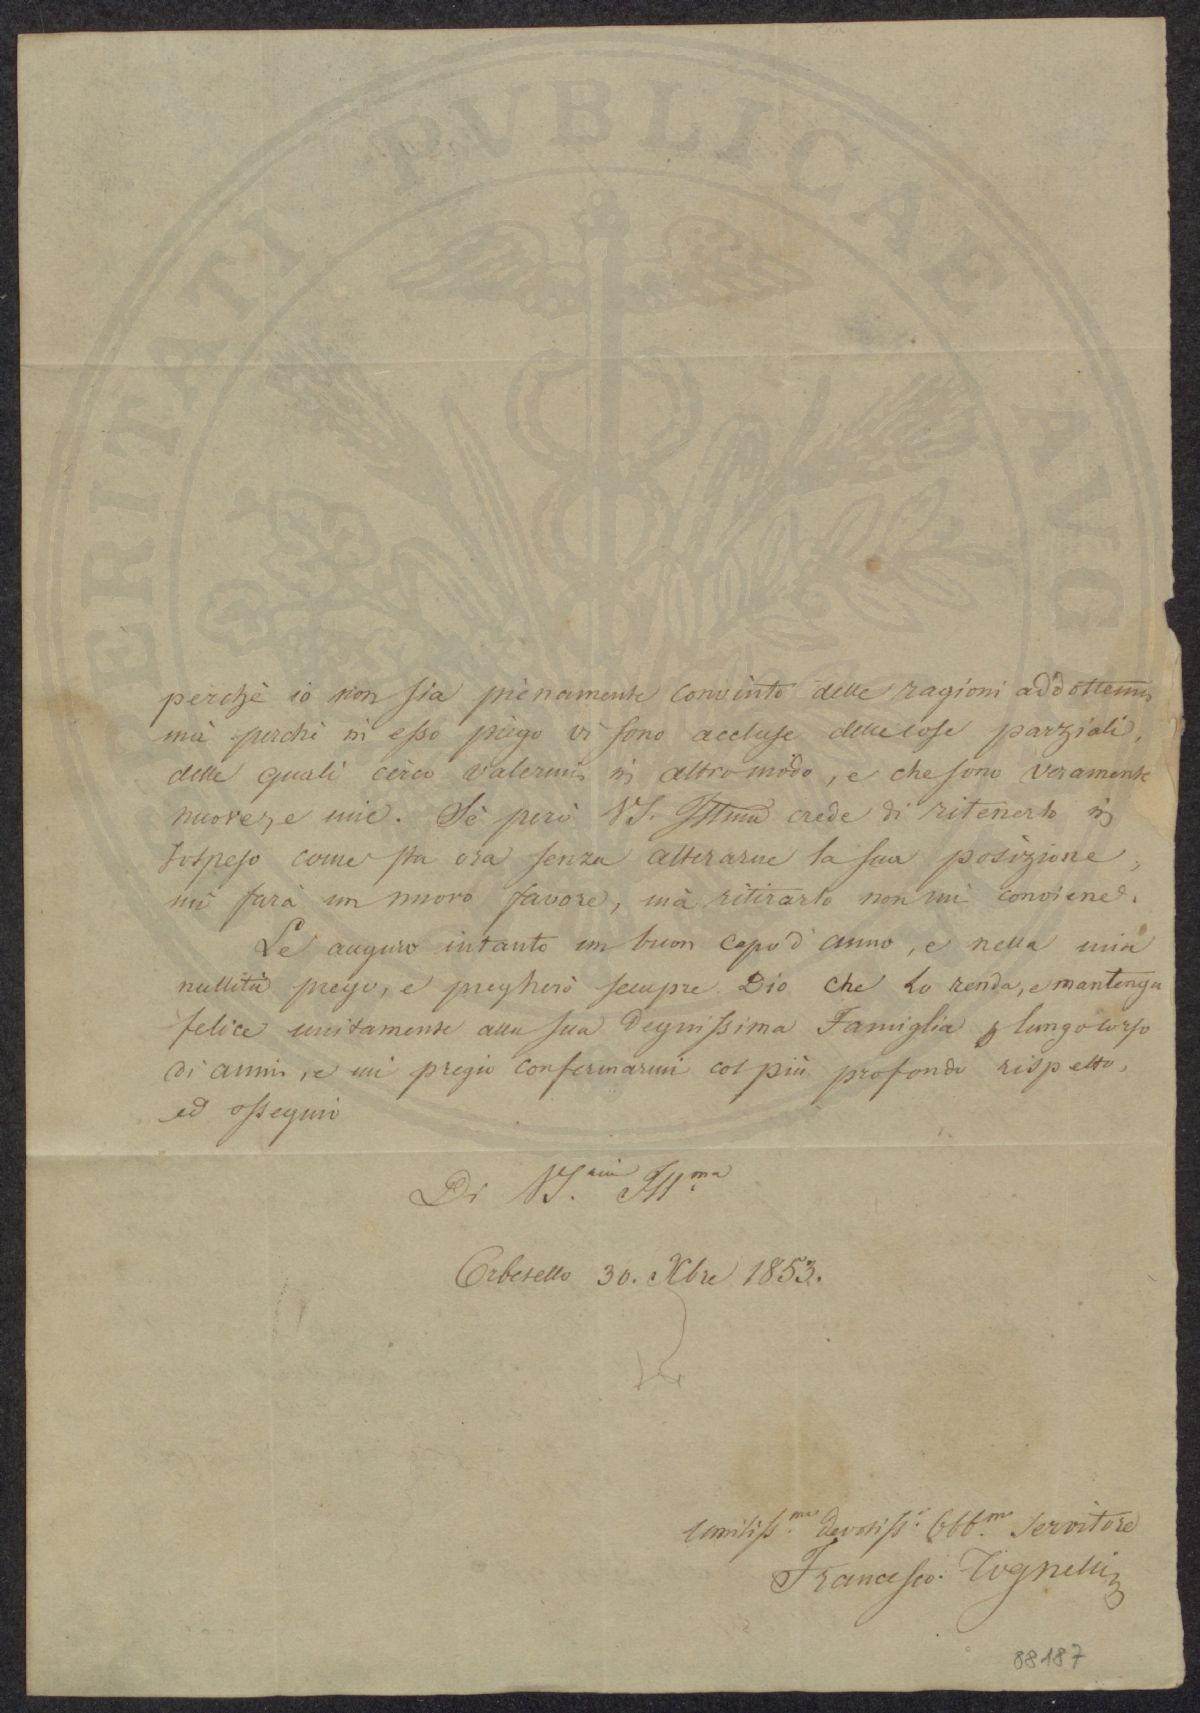 PROSPERITATI PVBLICAE AVGENDAE
perchè io non sia pienamente convinto delle ragioni addottemi
mà perchè in esso piego vi sono accluse delle cose parziali,
delle quali cerco valermi in altro modo, e che sono veramente
nuove, e mie. Sè però VS. Illma crede di ritenerlo in
sospeso come sta ora senza alterarne la sua posizione,
mi farà un nuovo favore, mà ritirarlo non mi conviene.
Le auguro intanto un buon capo d'anno, e nella mia
nullità prego, e pregherò sempre Dio che Lo renda, e mantenga
felice unitamente alla sua Degnissima Famiglia p lungo corso
di anni, e mi pregio confermarmi col più profondo rispetto,
ed ossequio
Di VS.ria Ill.ma
Orbetello 30. Xbre 1853.
Umiliss.mo Devotiss. Obb.mo Servitore
Francesco Tognelli
88187